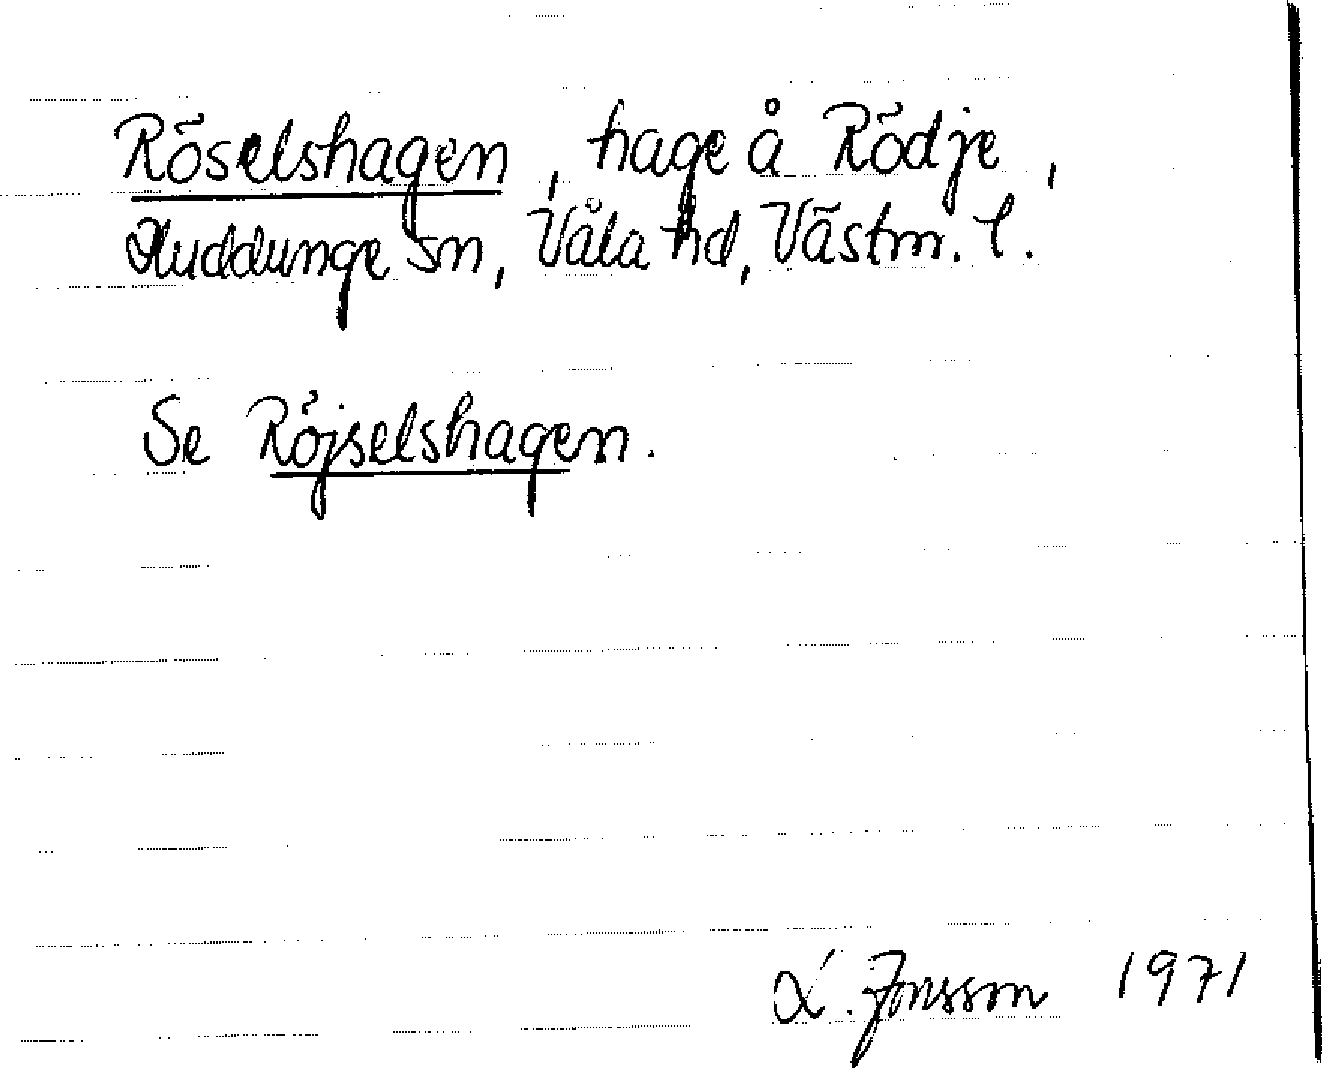 Röselshagen, hage å Rödje,
Huddunge sn, Våla hd, Västm. l.
Se Röjselshagen.
L. Jonsson 1971